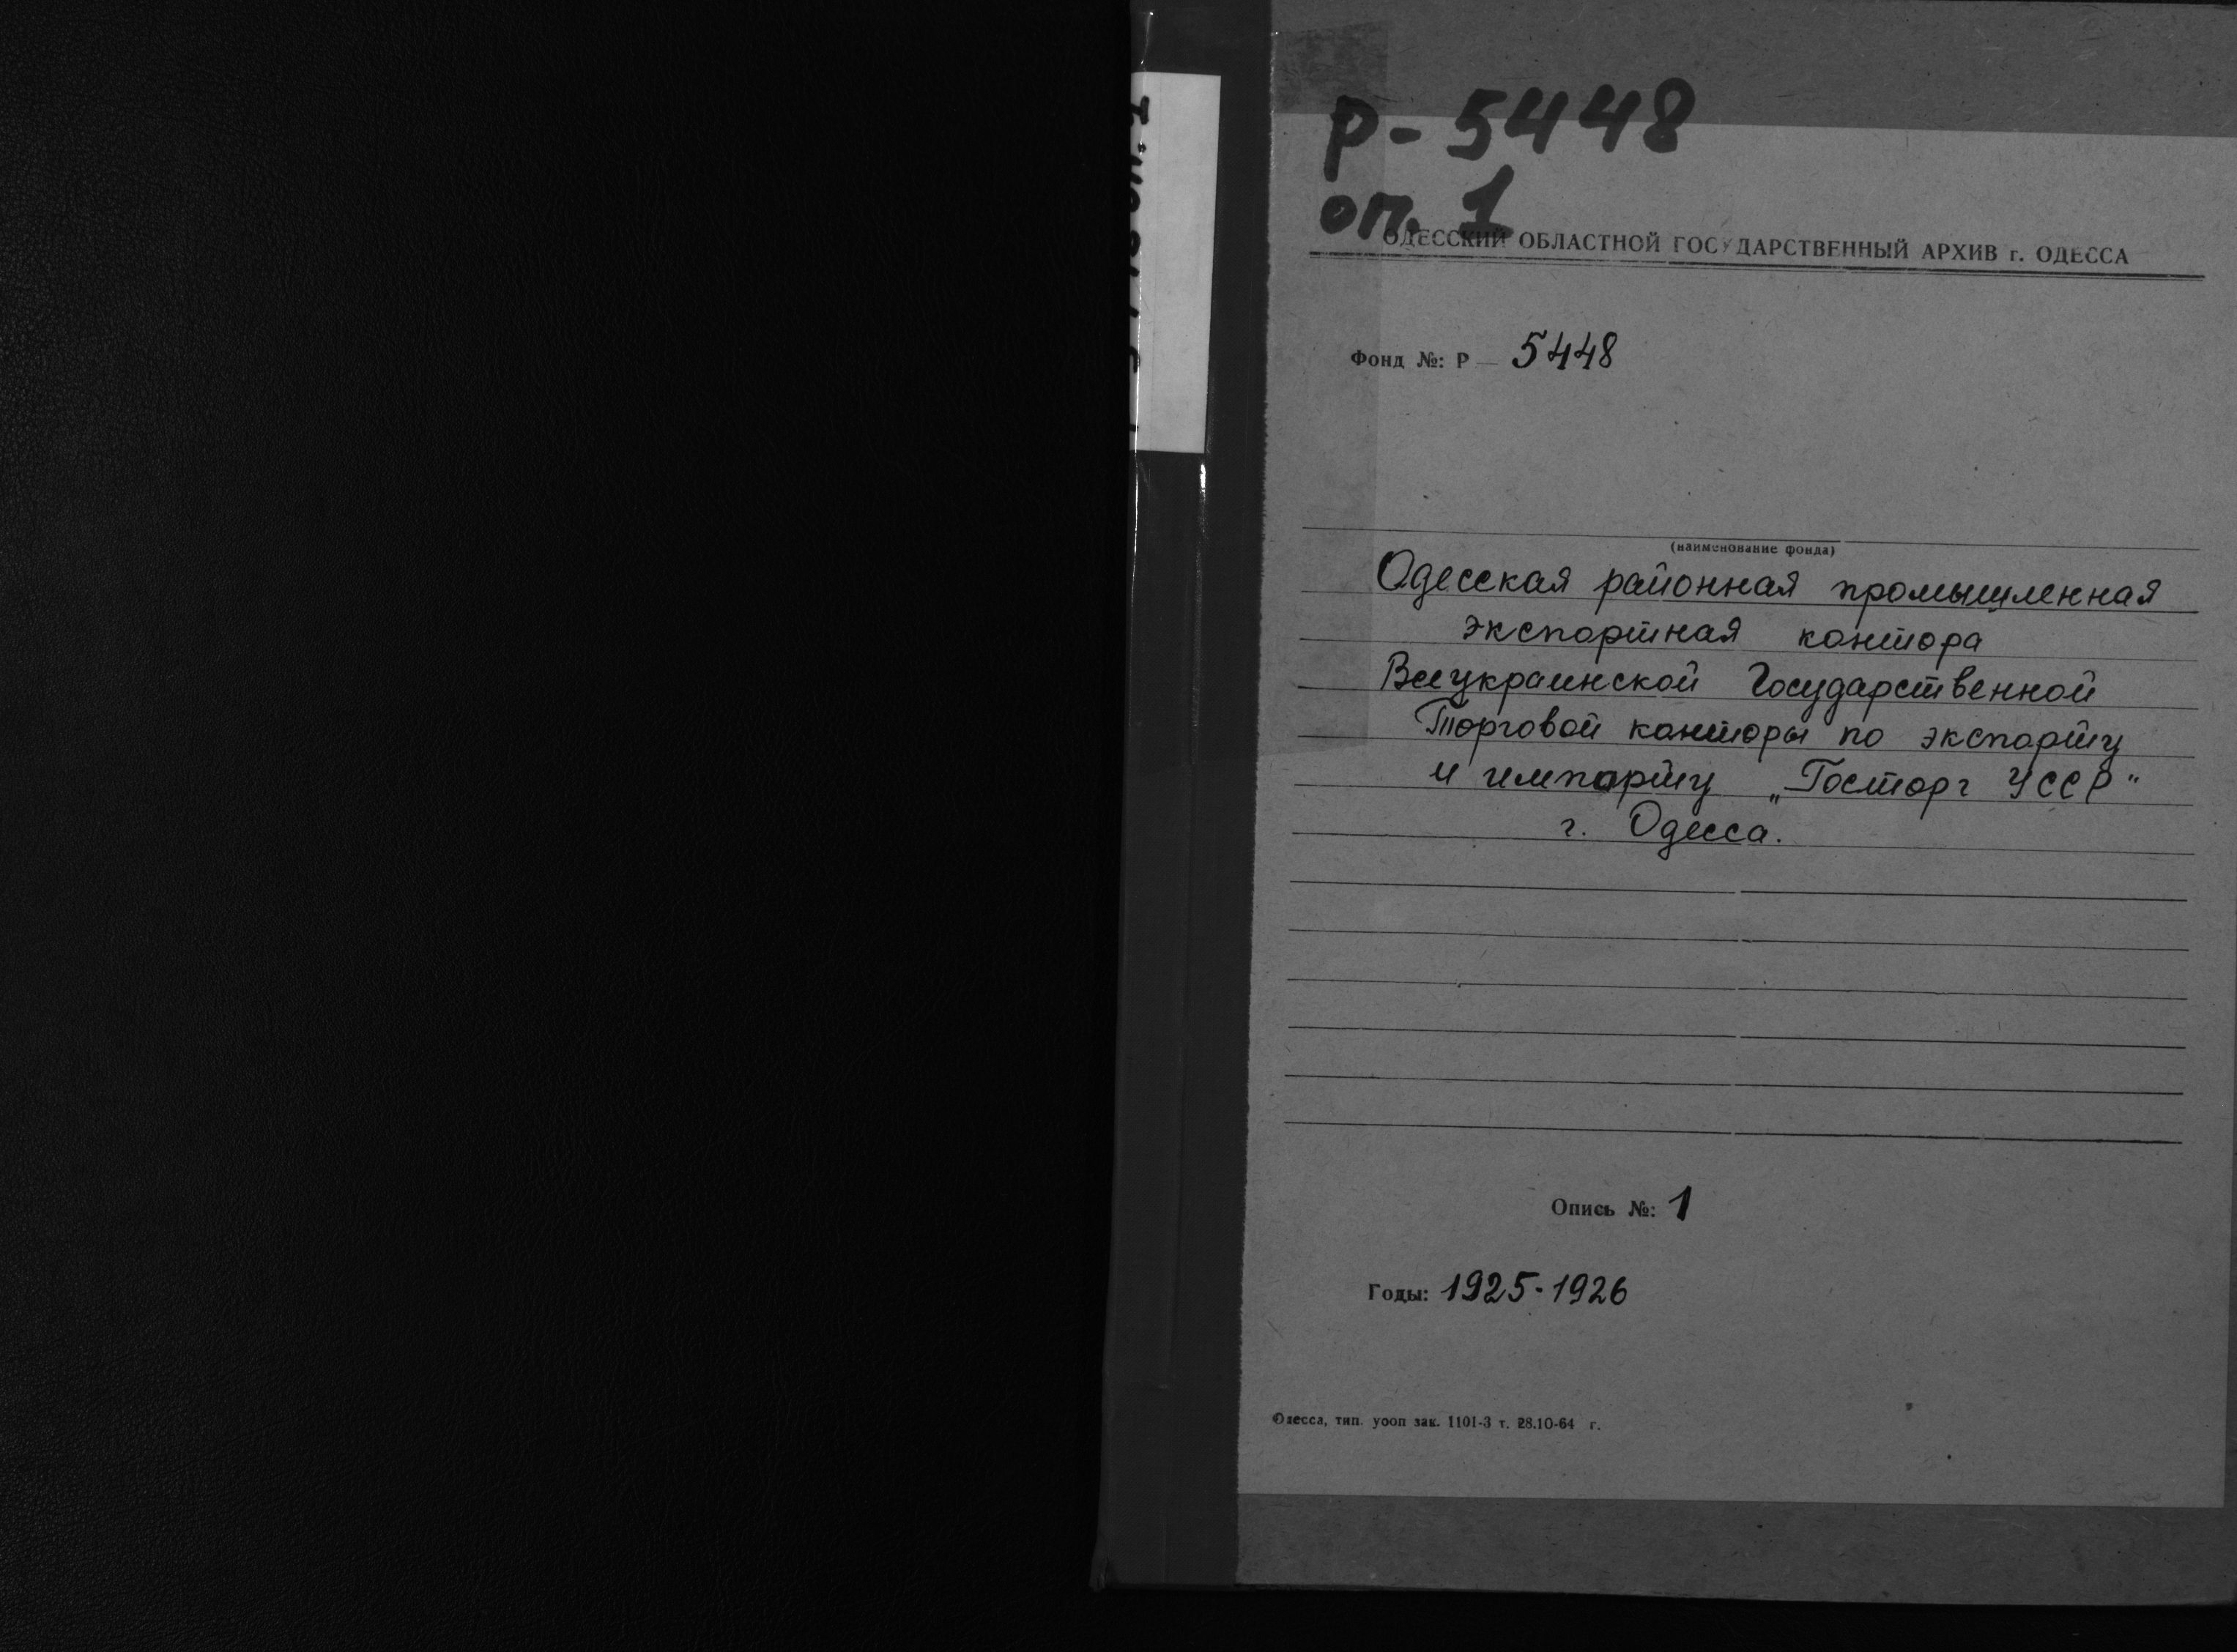 Р-5448
оп. 1
ОДЕССКИЙ ОБЛАСТНОЙ ГОСУДАРСТВЕННЫЙ АРХИВ г. ОДЕССА
Фонд №: Р — 5448
(наименование фонда)
Одесская районная промышленная
экспортная контора
Всеукраинской Государственной
Торговой конторы по экспорту
и импорту „Госторг УССР"
г. Одесса.
Опись №: 1
Годы: 1925-1926
Одесса, тип. уооп зак. 1101-3 т. 28.10-64 г.